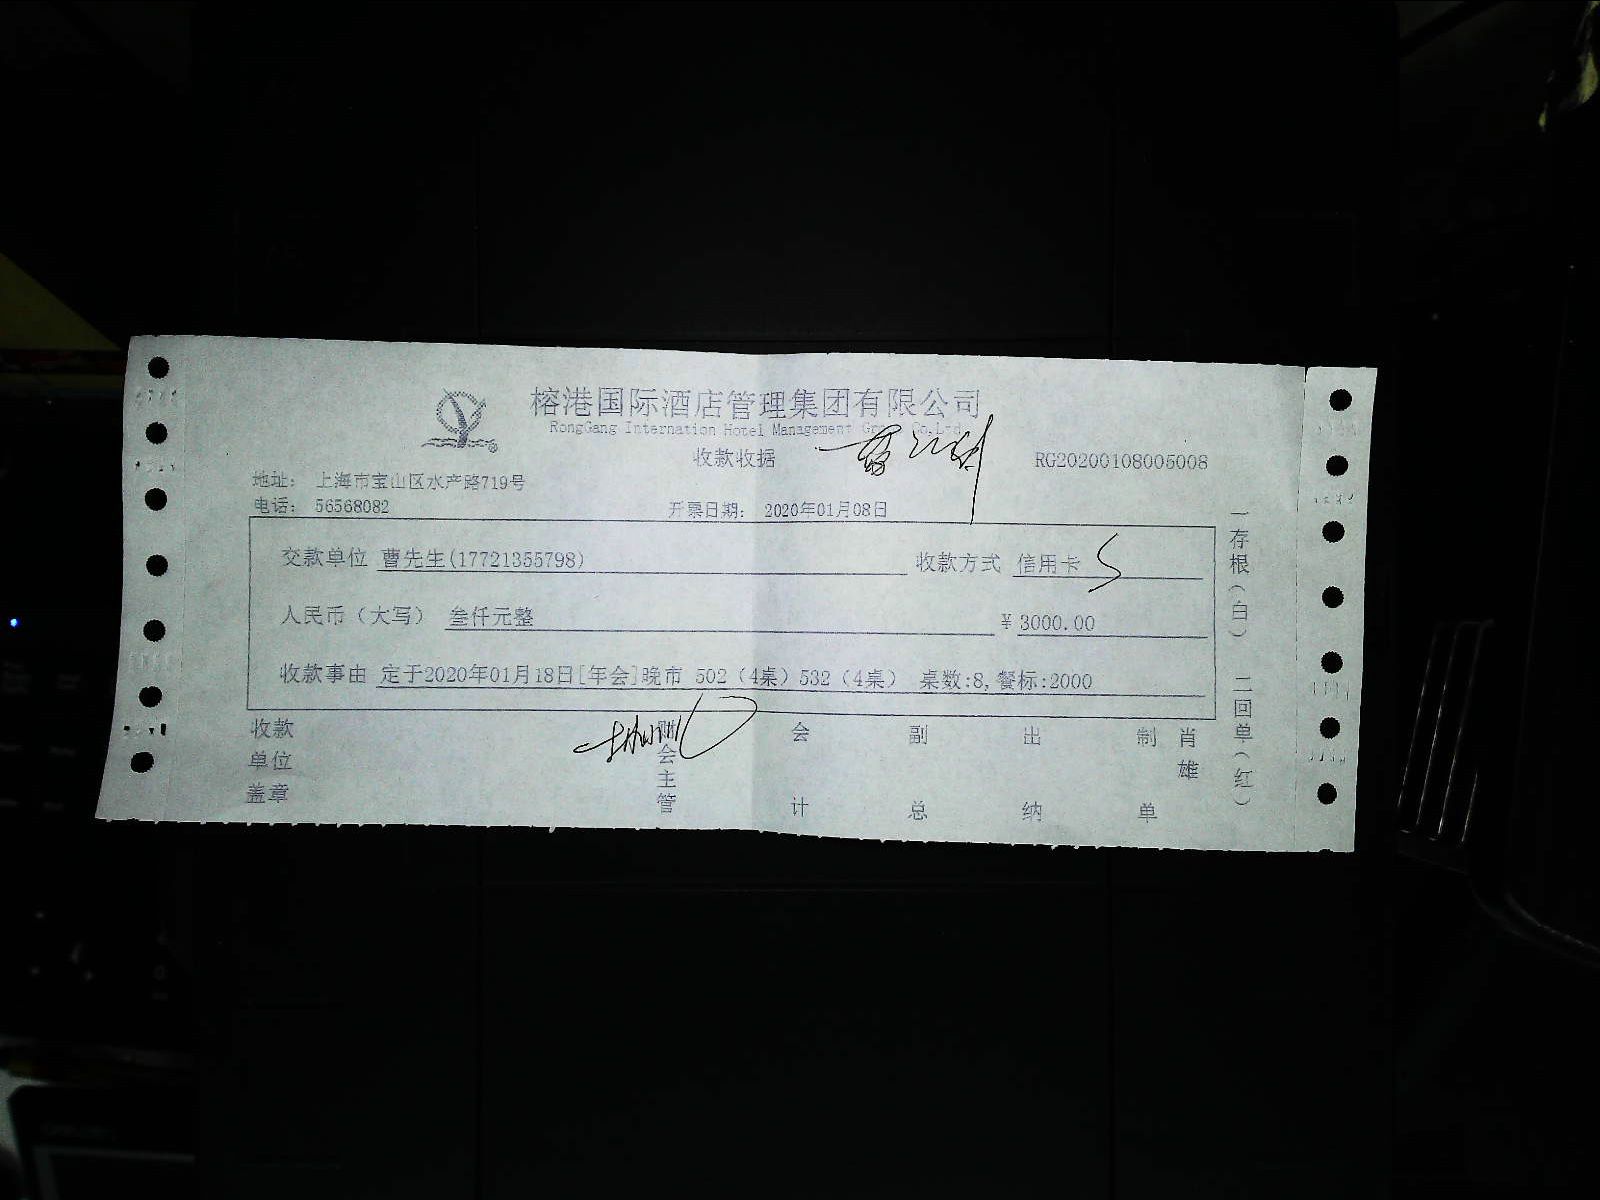 榕港国际酒店管理集团有限公司
RongGang Internation Hotel Management Gro Co.Ltd
收款收据
RG20200108005008
地址: 上海市宝山区水产路719号
电话: 56568082
开票日期: 2020年01月08日
交款单位 曹先生(17721355798) 收款方式 信用卡
人民币(大写) 叁仟元整 ¥3000.00
收款事由 定于2020年01月18日[年会]晚市 502(4桌)532(4桌) 桌数:8,餐标:2000
收款单位盖章
财会主管
会计
副总
出纳
制单
肖雄
一存根(白) 二回单(红)